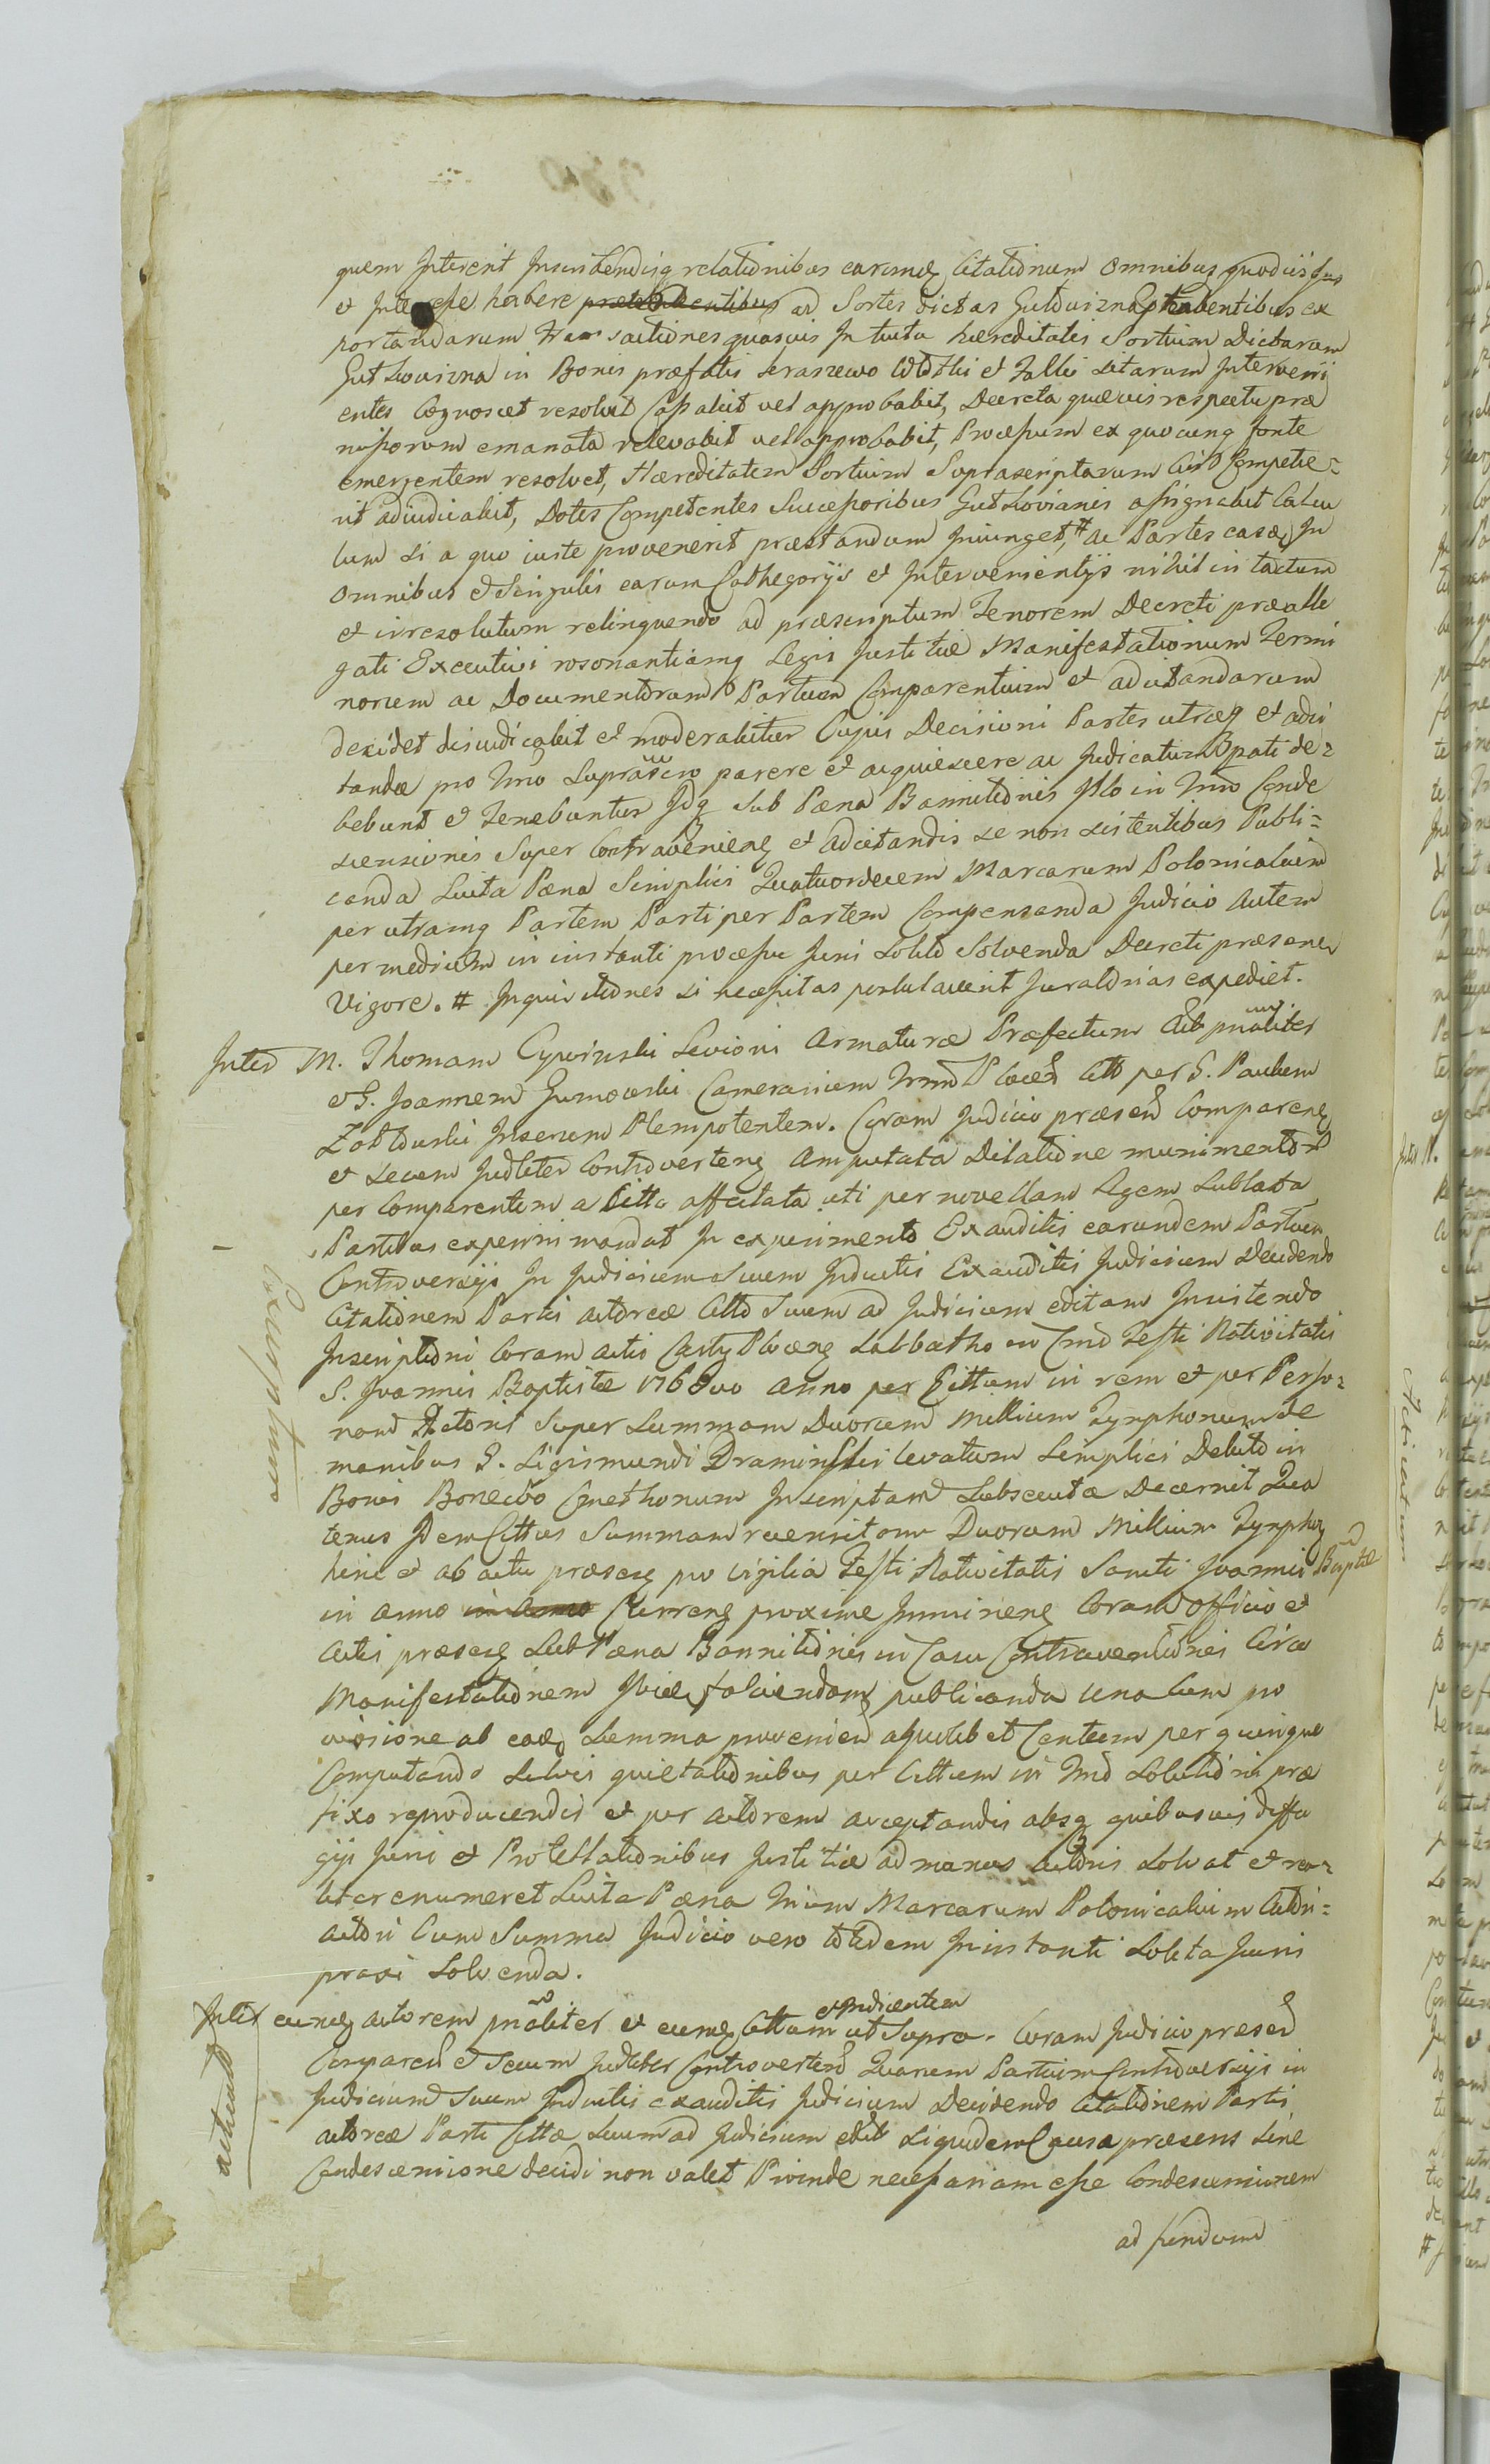 quem Interent Inscribendisq relationibus earumq Citationum omnibus quod iis Jus
et Interesse habere prætendentibus ad Sortes dictas Gutkowizna habentibus ex
portandarum Transactiones quasvis Intuitu hæreditatis Sortium dictarum
Gutkowizna in Bonis præfatis Kraszewo sitarum Interveni
entes Cognoscet resolvet Cassabit vel approbabit, Decreta quævis respectu præ
missorum emanata relevabit vel approbabit, Processum ex quocunq fonte
emergentem resolvet, Hæreditatem Sortium Suprascriptarum Cui Competie=
rit adiudicabit, Dotes Competentes Successoribus Gutkovianis assignabit Calcu
lum si a quo iuste provenerit præstandum Iniunget, # ac Partes easdq In
omnibus et Singulis earum Cathegoryis et Intervenientiis nihil intactum
et irresolutum relinquendo ad præscriptum Tenorem Decreti prælle
gati Executivi rosonantiamq Legis Justitiæ Manifestationum Termi
norum ac Documentorum Partium Comparentium et adcitandarum
decidet diiudicabit et moderabitur Cujus Decisioni Partes utræq et adci
tandæ pro Tmo Suprascro parere et acquiescere ac Judicatum pati de=
bebunt et Tenebuntur Idq Sub Pæna Bannitionis Illo in Tmo Conde
scensionis Super Contravenienq et Adcitandis se non sistentibus Publi=
canda Luita Pæna Simplici Quatuordecem Marcarum Polonicalium
per utramq Partem Parti per Partem Compensanda Judicio Autem
per medium in instanti processu Juris Solito Solvenda Decreti præsentis
Vigore. # Inquisitiones si necessitas postulaverit Juratorias expediet.
Inter M. Thomam Cywinski Levioris Armaturæ Præfectum Act pnaliter
et G. Joannem Gumowski Camerarium Trrm Plocen Citt per G. Paulum
Zoltowski Insertum Plenipotentem. Coram Judicio præsen Comparenq
et secum Judliter Controvertenq Amputata Dilatione munimentor
per Comparentem a Citto affectata uti per novellam Legem Sublata
Partibus experiri mandat In experimento Exauditis earundem Partium
Controversiis In Judicium Suum Inductis Exauditis Judicium Decidendo
Citationem Partis Actoreæ Citto Suum ad Judicium editam Insistendo
Inscriptioni Coram Actis Castr Plocenq Sabbatho in Crno Festi Nativitatis
S. Joannis Baptistæ 1768vo anno per Cittum in rem et per Perso=
nam Actoris Super Summam Duorum Millium Tynphonum de
manibus G. Sigismundi Draminski levatum Simplici Debito in
Bonis Cmethonum Inscriptam Subsecutæ Decernit Qua
tenus Idem Cittus Summam recensitam Duorum Millium Tynphoq
hinc et ab actu præsenq pro Vigilia Festi Nativitatis Sancti Joannis Baptæ
in anno in Anno Currenq proxime Imminenq Coram Officio et
Actis præsenq Sub Pæna Bannitionis in Casu Contraventionis Circa
Manifestationem Ibid faciendam publicanda una Cum pro
visione ab eadq Summa provenien a quolibet Centum per quinque
Computando Salvis quietationibus per Cittum in Tmo Solutionis præ
fixo reproducendis et per Actorem acceptandis absq quibusvis diffu
giis Juris et Protestationibus Justitiæ ad manus Actoris Solvat et rea=
liter enumeret Luita Pæna Trium Marcarum Polonicalium Actori=
Actori Cum Summa Judicio vero totidem In instanti Solita Juris
praxi Solvenda.
Inter eumq actorem pnaliter et eumq Cittum et Indicentem ut Supra. Coram Judicio præsen
Comparen et Secum Judliter Controverten Quarum Partium Controversiis in
Judicium Suum Inductis exauditis Judicium Decidendo Citationem Partis
Actoreæ Parti Cittæ Suum ad Judicium edit Siquidem Causa præsens Sine
Condescensione decidi non valet Proinde necessariam esse Condescensionem
ad fundum
Exemptum
acticatum